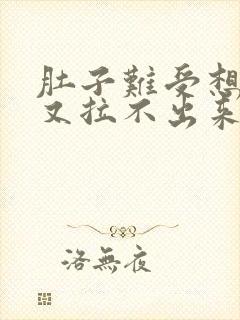 肚子難受想
又拉不出来
洛無夜